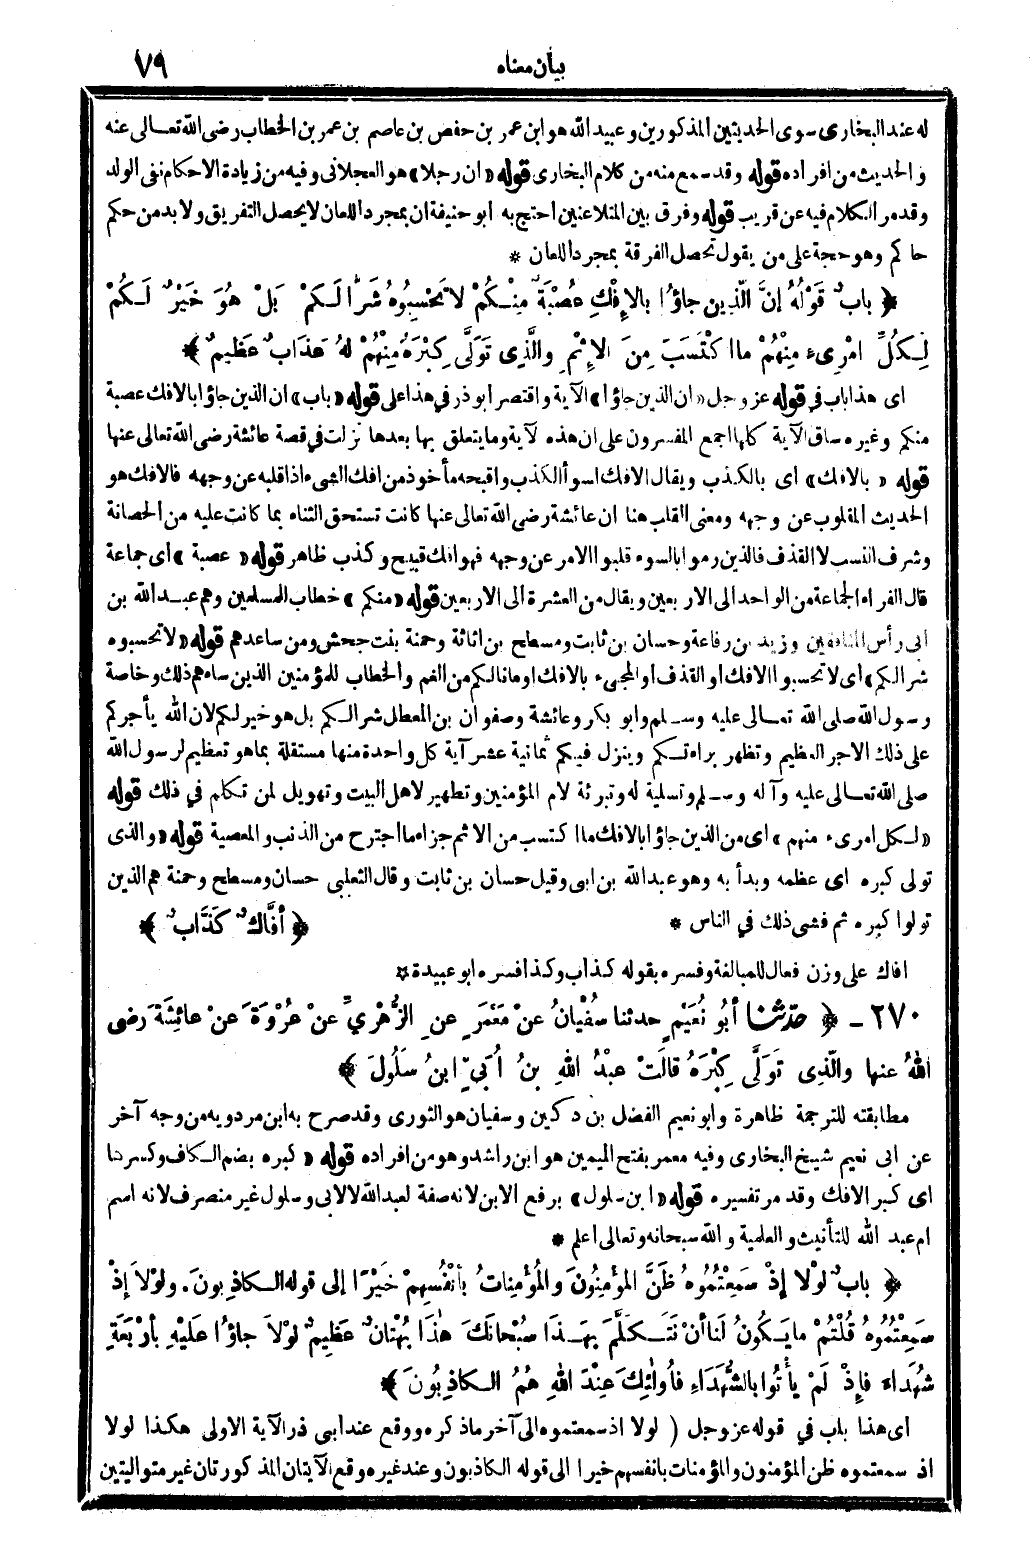 بيان معناه
٧٩
له عند البخارى سوى الحديثين المذكورين وعبيد الله هو ابن عمر بن حفص بن عاصم بن عمر بن الخطاب رضى الله تعـالى عنه
والحديث من افراده قوله وقد سمع منه من كلام البخارى قوله «ان رجلا» هو العجلانى وفيه من زيادة الاحكام نفى الولد
وقد مر الكلام فيه عن قريب قوله وفرق بين المتلاعنين احتج به ابو حنيفة ان بمجرد اللعان لا يحصل التفريق ولا بد من حكم
حاكم وهو حجة على من يقول تحصل الفرقة بمجرد اللعان *
﴿ بابُ قَوْلُهُ إنَّ الّذِين جاؤُا بالإِفْكِ عُصْبَةٌ مِنْـكُمْ لاَ تَحْسِبُوهُ شَرًّا لَـكُمْ بَلْ هُوَ خَيْرٌ لَـكُمْ
لِـكُلِّ امْرِىءٍ مِنْهُمْ ما اكْتَسَبَ مِنَ الإِثْمِ والَّذِى تَوَلَّى كِبْرَهُ مِنْهُمْ لهُ عَذَابٌ عَظِيمٌ ﴾
اى هذا باب في قوله عز وجل «ان الذين جاؤا» الآية واقتصر ابو ذر في هذا على قوله «باب» ان الذين جاؤا بالافك عصبة
منكم وغيره ساق الآية كلها اجمع المفسرون على ان هذه لآية وما يتعلق بها بعدها نزلت في قصة عائشة رضى الله تعالى عنها
قوله «بالافك» اى بالكذب ويقال الافك اسوأ الكذب واقبحه مأخوذ من افك الشىء اذا قلبه عن وجهه فالافك هو
الحديث المقلوب عن وجهه ومعنى القلب هنا ان عائشة رضى الله تعالى عنها كانت تستحق الثناء بما كانت عليه من الحصانة
وشرف النسب لا القذف فالذين رموا بالسوء قلبوا الامر عن وجهه فهو افك قبيح وكذب ظاهر قوله «عصبة» اى جماعة
قال الفراء الجماعة من الواحد الى الاربعين ويقال من العشرة الى الاربعين قوله «منكم» خطاب المسلمين وهم عبـد الله بن
ابى رأس المنافقين وزيد بن رفاعة وحسان بن ثابت ومسطح بن اثاثة وحمنة بنت جحش ومن ساعدهم قوله «لا تحسبوه
شرا لكم» اى لا تحسبوا الافك او القذف او المجىء بالافك او ما نالكم من الغم والخطاب للمؤمنين الذين ساءهم ذلك وخاصة
رسول الله صلى الله تعـالى عليه وسـلم وابو بكر وعائشة وصفوان بن المعطل شرا لـكم بل هو خير لكم لان الله يأجركم
على ذلك الاجر العظيم وتظهر براءتـكم وينزل فيكم ثمانية عشر آية كل واحدة منها مستقلة بما هو تعظيم لرسول الله
صلى الله تعـالى عليه وآله وسـلم وتسلية له وتبرئة لام المؤمنين وتطهير لاهل البيت وتهويل لمن تكلم في ذلك قوله
«لـكل امرىء منهم» اى من الذين جاؤا بالافك ما اكتسب من الاثم جزاء ما اجترح من الذنب والمعصية قوله «والذى
تولى كبره اى عظمه وبدأ به وهو عبد الله بن ابى وقيل حسان بن ثابت وقال الثعلبى حسان ومسطح وحمنة هم الذين
تولوا كبره ثم فشى ذلك في الناس * ﴿ أفَّاكٌ كَذَّابٌ ﴾
افاك على وزن فعال للمبالغة وفسره بقوله كذاب وكذا فسره ابو عبيدة *
٢٧٠ - ﴿ حدّثنا أبُو نُعَيْمٍ حدثنا سُفْيَانُ عنْ مَعْمَرٍ عنِ الزُّهْرِيِّ عنْ عُرْوَةَ عنْ عائِشَةَ رضى
اللهُ عنها والّذِى تَوَلَّى كِبْرَهُ قالَتْ عبْدُ اللهِ بنُ أُبَيٍّ ابنُ سَلُولَ ﴾
مطابقته للترجمة ظاهرة وابو نعيم الفضل بن دكين وسفيان هو الثورى وقد صرح به ابن مردويه من وجه آخر
عن ابى نعيم شيخ البخارى وفيه معمر بفتح الميمين هو ابن راشد وهو من افراده قوله «كبره بضم الـكاف وكسرها
اى كبر الافك وقد مر تفسيره قوله «ابن سلول» برفع الابن لانه صفة لعبد الله لا لابى وسلول غير منصرف لانه اسم
ام عبد الله للتأنيث والعلمية والله سبحانه وتعالى اعلم *
﴿ بابُ لَوْلا إذْ سَمِعْتُمُوهُ ظَنَّ المُؤْمِنُونَ والمُؤْمِناتُ بأنْفُسِهِمْ خَيْرًا إلى قوله الـكاذِبونَ. ولَوْلاَ إذْ
سَمِعْتُمُوهُ قُلْتُمْ ما يَـكُونُ لَنا أنْ نَتَـكَلَّمَ بِهَـذَا سُبْحانَكَ هٰذَا بُهْتانٌ عَظِيمٌ لَوْلاَ جاؤُا عَلَيْهِ بأرْبَعَةِ
شُهَدَاءَ فإِذْ لَمْ يأْتُوا بالشُّهَدَاءِ فأُولٰئِكَ عِنْدَ اللهِ هُمُ الـكاذِبُونَ ﴾
اى هذا باب في قوله عز وجل ( لولا اذ سمعتموه الى آخر ما ذكره ووقع عند ابى ذر الآية الاولى هكذا لولا
اذ سمعتموه ظن المؤمنون والمؤمنات بانفسهم خيرا الى قوله الكاذبون وعند غيره وقع الآيتان المذكورتان غير متواليتين